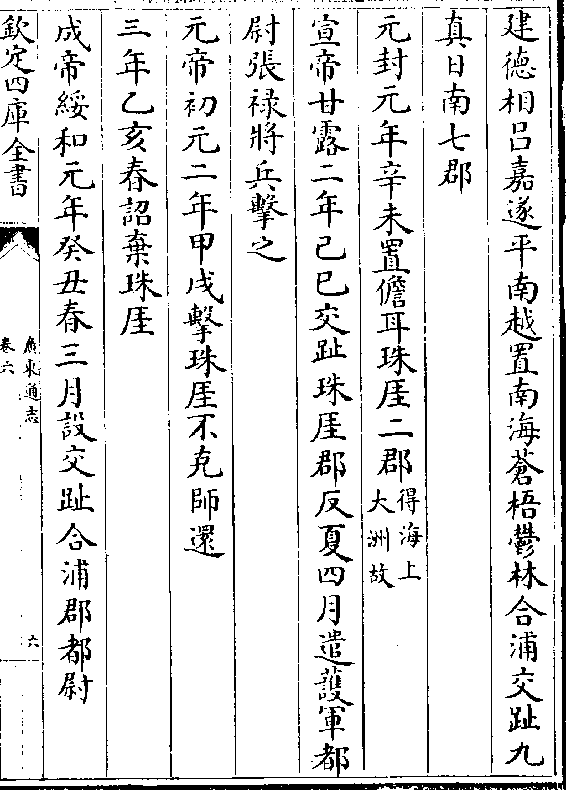 建德相吕嘉遂平南越置南海蒼梧鬱林合浦交趾九
真日南七郡
元封元年辛未置儋耳珠厓二郡得海上大洲故
宣帝甘露二年己巳交趾珠厓郡反夏四月遣䕶軍都
尉張禄將兵擊之
元帝初元二年甲戌擊珠厓不克師還
三年乙亥春詔棄珠厓
成帝綏和元年癸丑春三月設交趾合浦郡都尉
欽定四庫全書
廣東通志
卷六
六